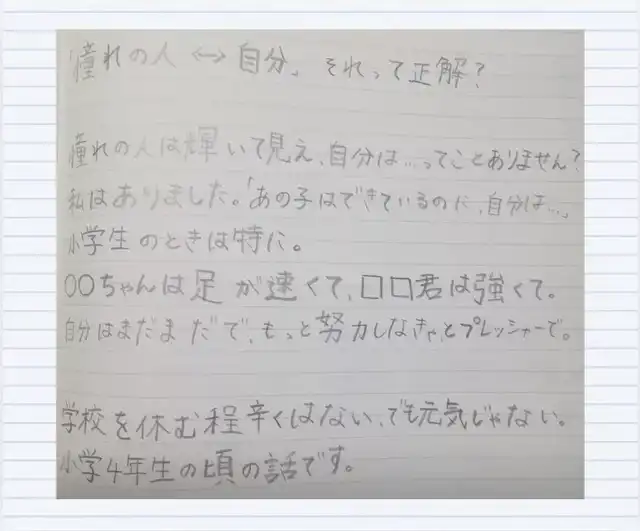 「憧れの人 ↔ 自分」 それって正解?
憧れの人は輝いて見え、自分は…ってことありません?
私はありました。「あの子はできているのに、自分は…」
小学生のときは特に。
〇〇ちゃんは足が速くて、□□君は強くて。
自分はまだまだで、もっと努力しなきゃとプレッシャーで。
学校を休む程辛くはない、でも元気じゃない。
小学4年生の頃の話です。